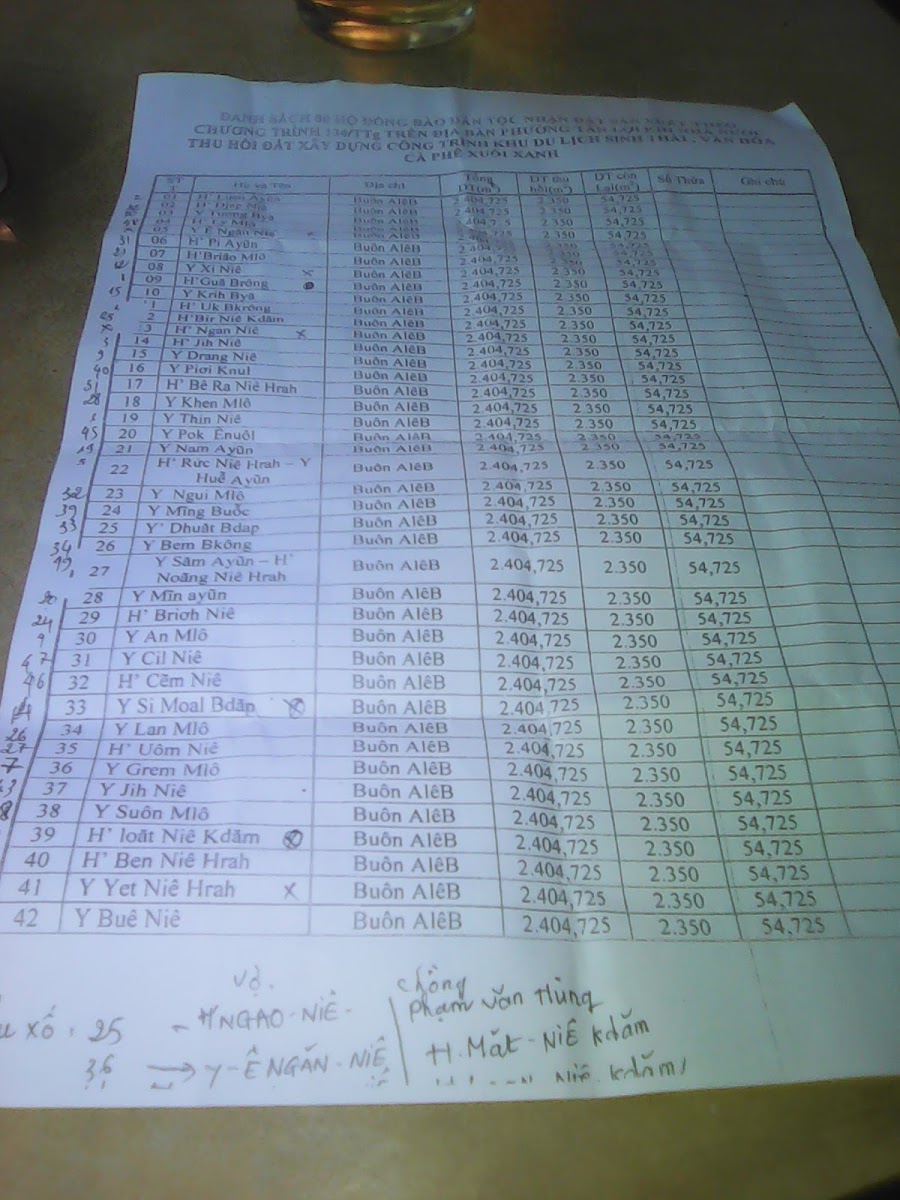 DANH SÁCH 80 HỘ ĐỒNG BÀO DÂN TỘC NHẬN ĐẤT SẢN XUẤT THEO
CHƯƠNG TRÌNH 134/TTg TRÊN ĐỊA BÀN PHƯỜNG TÂN LỢI
THU HỒI ĐẤT XÂY DỰNG CÔNG TRÌNH KHU DU LỊCH SINH THÁI, VĂN HÓA
CÀ PHÊ XUÔI XANH
ST T Họ và Tên Địa chỉ Tổng DT(m²) DT thu hồi(m²) DT còn Lại(m²) Số Thửa Ghi chú
01 Buôn AlêB 2.404,725 2.350 54,725
02 Buôn AlêB 2.404,725 2.350 54,725
03 Y Bya Buôn AlêB 2.404,725 2.350 54,725
04 Mlô Buôn AlêB 2.404,725 2.350 54,725
05 Y Ê Ngăn Niê Buôn AlêB 2.404,725 2.350 54,725
31 06 H' Pi Ayŭn Buôn AlêB 2.404,725 2.350 54,725
07 H'Brião Mlô Buôn AlêB 2.404,725 2.350 54,725
08 Y Xi Niê x Buôn AlêB 2.404,725 2.350 54,725
09 H'Guă Brông Buôn AlêB 2.404,725 2.350 54,725
15 10 Y Krih Bya Buôn AlêB 2.404,725 2.350 54,725
1 H' Uk Bkrông Buôn AlêB 2.404,725 2.350 54,725
2 H'Bir Niê Kdăm Buôn AlêB 2.404,725 2.350 54,725
3 H' Ngan Niê x Buôn AlêB 2.404,725 2.350 54,725
14 H' Jih Niê Buôn AlêB 2.404,725 2.350 54,725
9 15 Y Drang Niê Buôn AlêB 2.404,725 2.350 54,725
40 16 Y Piơi Knul Buôn AlêB 2.404,725 2.350 54,725
17 H' Bê Ra Niê Hrah Buôn AlêB 2.404,725 2.350 54,725
28 18 Y Khen Mlô Buôn AlêB 2.404,725 2.350 54,725
19 Y Thin Niê Buôn AlêB 2.404,725 2.350 54,725
45 20 Y Pok Ênuôl Buôn AlêB 2.404,725 2.350 54,725
21 Y Nam Ayŭn Buôn AlêB 2.404,725 2.350 54,725
22 H' Rức Niê Hrah – Y Huê Ayŭn Buôn AlêB 2.404,725 2.350 54,725
32 23 Y Ngui Mlô Buôn AlêB 2.404,725 2.350 54,725
39 24 Y Mĭng Buôc Buôn AlêB 2.404,725 2.350 54,725
33 25 Y' Dhuăt Bdap Buôn AlêB 2.404,725 2.350 54,725
34 26 Y Bem Bkông Buôn AlêB 2.404,725 2.350 54,725
19 27 Y Săm Ayŭn – H' Noăng Niê Hrah Buôn AlêB 2.404,725 2.350 54,725
20 28 Y Mĭn ayŭn Buôn AlêB 2.404,725 2.350 54,725
24 29 H' Brioh Niê Buôn AlêB 2.404,725 2.350 54,725
9 30 Y An Mlô Buôn AlêB 2.404,725 2.350 54,725
47 31 Y Cil Niê Buôn AlêB 2.404,725 2.350 54,725
46 32 H' Cĕm Niê Buôn AlêB 2.404,725 2.350 54,725
33 Y Si Moal Bdăp Buôn AlêB 2.404,725 2.350 54,725
26 34 Y Lan Mlô Buôn AlêB 2.404,725 2.350 54,725
27 35 H' Uôm Niê Buôn AlêB 2.404,725 2.350 54,725
7 36 Y Grem Mlô Buôn AlêB 2.404,725 2.350 54,725
37 Y Jih Niê Buôn AlêB 2.404,725 2.350 54,725
38 Y Suôn Mlô Buôn AlêB 2.404,725 2.350 54,725
39 H' loăt Niê Kdăm Buôn AlêB 2.404,725 2.350 54,725
40 H' Ben Niê Hrah Buôn AlêB 2.404,725 2.350 54,725
41 Y Yet Niê Hrah x Buôn AlêB 2.404,725 2.350 54,725
42 Y Buê Niê Buôn AlêB 2.404,725 2.350 54,725
vợ. chồng
xố : 25 - H'NGAO-NIÊ- Phạm Văn Hùng
36 → Y-Ê NGĂN-NIÊ H. Măt-NIÊ Kdăm
NIÊ Kdăm